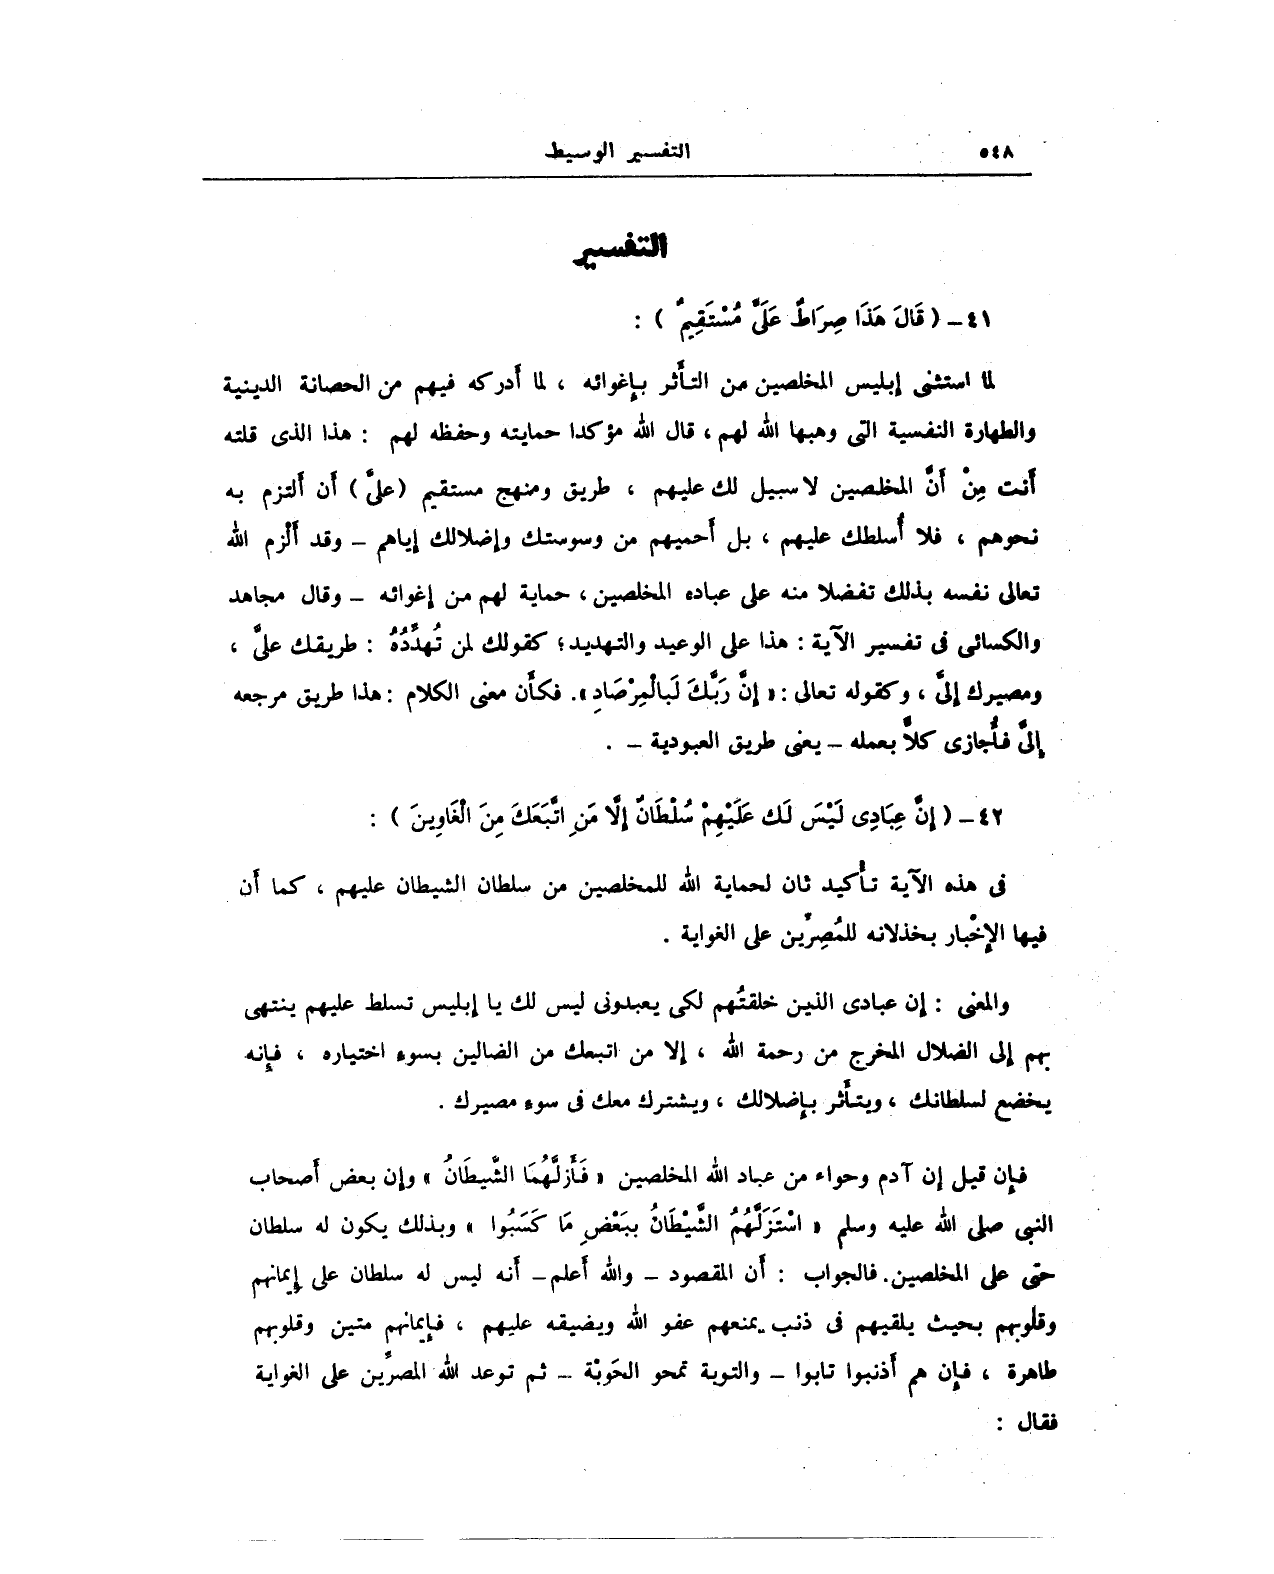 ٥٤٨ التفسير الوسيط
التفسير
٤١ – ( قَالَ هَذَا صِرَاطٌ عَلَىَّ مُسْتَقِيمٌ ) :
لما استثنى إبليس المخلصين من التأثر بإغوائه ، لما أدركه فيهم من الحصانة الدينية
والطهارة النفسية التى وهبها الله لهم ، قال الله مؤكدا حمايته وحفظه لهم : هذا الذى قلته
أنت مِنْ أنَّ المخلصين لا سبيل لك عليهم ، طريق ومنهج مستقيم (علىَّ) أن ألتزم به
نحوهم ، فلا أُسلطك عليهم ، بل أحميهم من وسوستك وإضلالك إياهم – وقد ألْزم الله
تعالى نفسه بذلك تفضلا منه على عباده المخلصين ، حماية لهم من إغوائه – وقال مجاهد
والكسائى فى تفسير الآية : هذا على الوعيد والتهديد ؛ كقولك لمن تُهدِّدُهُ : طريقك علىَّ ،
ومصيرك إلىَّ ، وكقوله تعالى : « إنَّ رَبَّكَ لَبالْمِرْصَادِ ». فكأن معنى الكلام : هذا طريق مرجعه
إلىَّ فأُجازى كلاًّ بعمله – يعنى طريق العبودية – .
٤٢ – ( إنَّ عِبَادِى لَيْسَ لَكَ عَلَيْهِمْ سُلْطَانٌ إلَّا مَنِ اتَّبَعَكَ مِنَ الْغَاوِينَ ) :
فى هذه الآية تأكيد ثان لحماية الله للمخلصين من سلطان الشيطان عليهم ، كما أن
فيها الإخْبار بخذلانه للمُصِرِّين على الغواية .
والمعنى : إن عبادى الذين خلقتُهم لكى يعبدونى ليس لك يا إبليس تسلط عليهم ينتهى
بهم إلى الضلال المخرج من رحمة الله ، إلا من اتبعك من الضالين بسوء اختياره ، فإنه
يخضع لسلطانك ، ويتأثر بإضلالك ، ويشترك معك فى سوء مصيرك .
فإن قيل إن آدم وحواء من عباد الله المخلصين « فَأَزلَّهُمَا الشَّيطَانُ » وإن بعض أصحاب
النبى صلى الله عليه وسلم « اسْتَزَلَّهُمُ الشَّيْطَانُ بِبَعْضِ مَا كَسَبُوا » وبذلك يكون له سلطان
حتى على المخلصين. فالجواب : أن المقصود – والله أعلم – أنه ليس له سلطان على إيمانهم
وقلوبهم بحيث يلقيهم فى ذنب يمنعهم عفو الله ويضيقه عليهم ، فإيمانهم متين وقلوبهم
طاهرة ، فإن هم أذنبوا تابوا – والتوبة تمحو الحَوبْة – ثم توعد الله المصرِّين على الغواية
فقال :